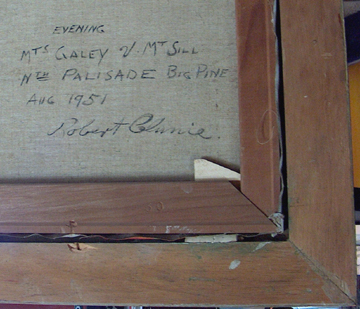 EVENING
MTS GALEY & MT SILL
NTH PALISADE BIG PINE
AUG 1951
Robert Clunie.